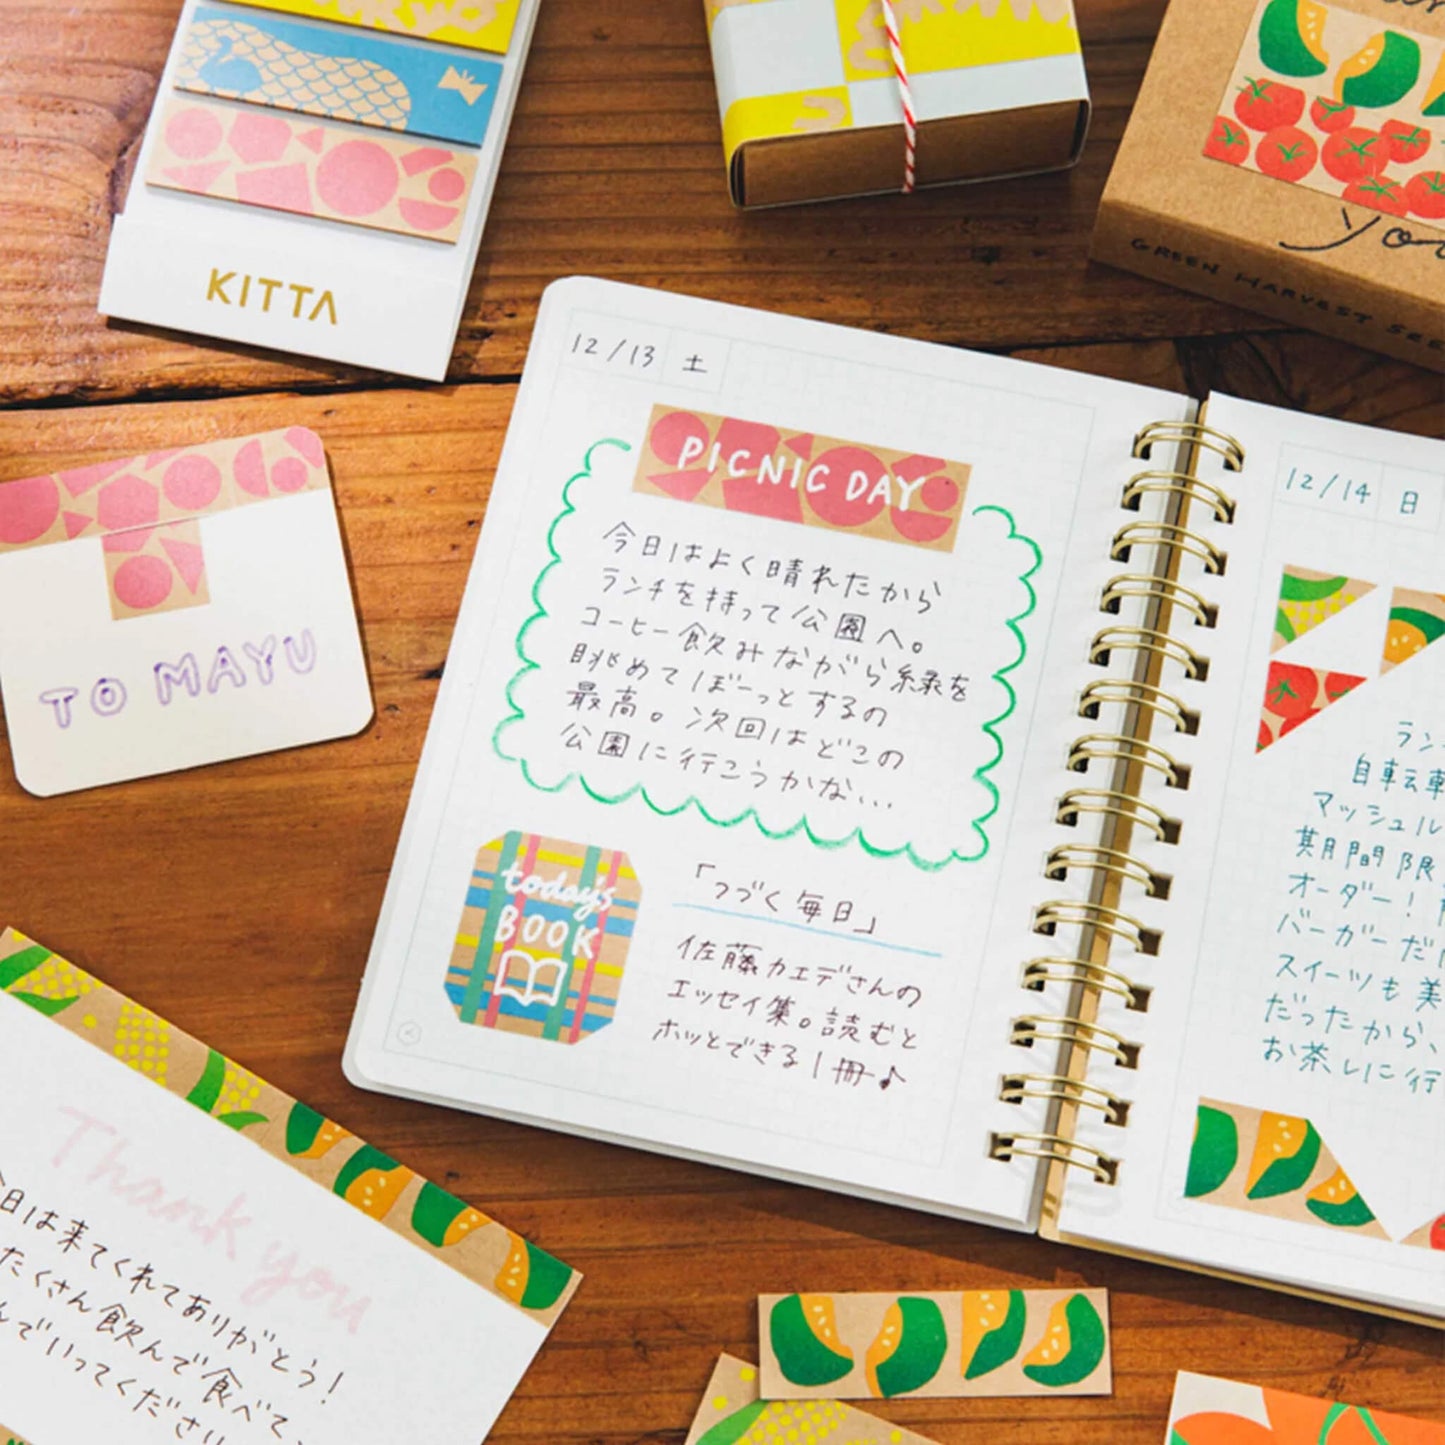 KITTA
you
GREEN HARVEST
TO MAYU
12/13 土
PICNIC DAY
今日はよく晴れたから
ランチを持って公園へ。
コーヒー飲みながら緑を
眺めてぼーっとするの
最高。次回はどこの
公園に行こうかな...
today's
BOOK
「つづく毎日」
佐藤カエデさんの
エッセイ集。読むと
ホッとできる1冊♪
12/14 日
ラン
自転車
マッシュル
期間限
オーダー!
バーガーだ
スイーツも美
だったから、
お茶しに行
Thank you
今日は来てくれてありがとう!
たくさん飲んで食べて、
んでいってくださ